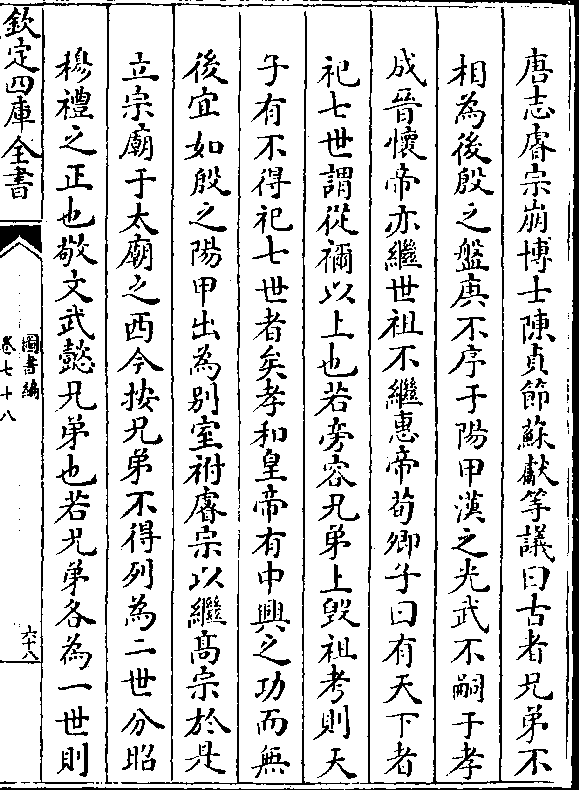 唐志睿宗崩博士陳貞節蘇獻等議曰古者兄弟不
相為後殷之盤庚不序于陽甲漢之光武不嗣于孝
成晉懷帝亦繼世祖不繼惠帝荀卿子曰有天下者
祀七世謂從禰以上也若旁容兄弟上毀祖考則天
子有不得祀七世者矣孝和皇帝有中興之功而無
後宜如殷之陽甲出為別室祔睿宗以繼髙宗於是
立宗廟于太廟之西今按兄弟不得列為二世分昭
穆禮之正也敬文武懿兄弟也若兄弟各為一世則
欽定四庫全書
圖書編
卷七十八
六十八